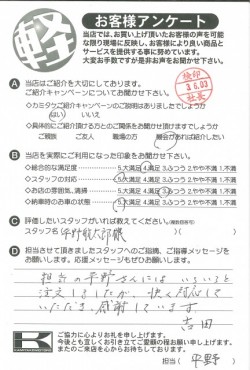 軽
お客様アンケート
当店では、お買い上げ頂いたお客様の声を可能
な限り現場に反映し、お客様により良い商品と
サービスを提供する事に努めています。
大変お手数ですが是非お声をお聞かせ下さい。
A 当店はご紹介を大切にしております。
ご紹介キャンペーンについてお聞かせ下さい。
カミタケご紹介キャンペーンのご説明はありましたでしょうか
はい いいえ
具体的にご紹介頂ける方との関係をお聞かせ頂けますでしょうか
ご親族 ご友人 職場の方 機会があれば紹介したい
B 当店を実際にご利用になった印象をお聞かせ下さい。
総合的な満足度 5.大満足 4.満足 3.ふつう 2.やや不満 1.不満
スタッフの対応 5.大満足 4.満足 3.ふつう 2.やや不満 1.不満
お店の雰囲気、清掃 5.大満足 4.満足 3.ふつう 2.やや不満 1.不満
納車時のお車の状態 5.大満足 4.満足 3.ふつう 2.やや不満 1.不満
C 評価したいスタッフがいれば教えてください。(複数回答可)
スタッフ名( 平野 様)( )
D 担当させて頂きましたスタッフへのご指摘、ご指導メッセージを
お願いします。応援メッセージもぜひお願いします。
担当の平野さんにはいろいろと
注文しましたが、快く対応して
いただき、感謝しています
吉田
ご協力に心よりお礼を申し上げます。
今後とも宜しくお引き立てご愛顧の程お願い申し上げます。
またのご来店を心からお待ちしております。
担当( 平野 )